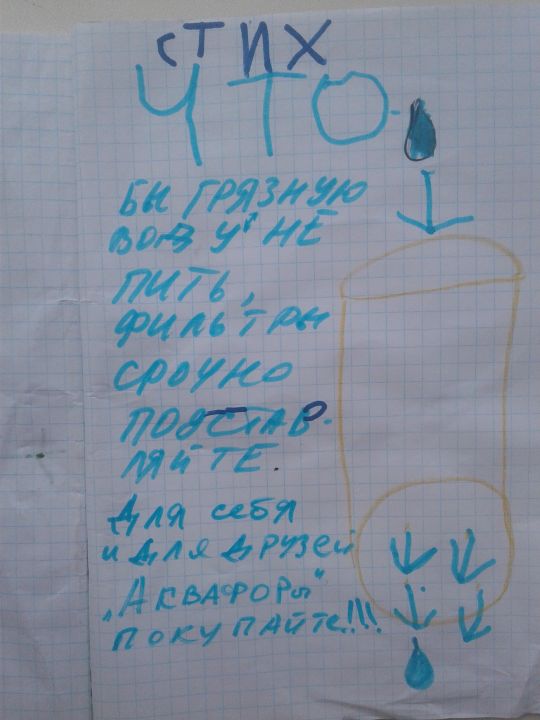 СТИХ
ЧТО
БЫ ГРЯЗНУЮ
ВОДУ НЕ
ПИТЬ,
ФИЛЬТРЫ
СРОЧНО
ПОДСТАВ-
ЛЯЙТЕ.
Для себя
и для друзей
„АКВАФОРы"
ПОКУПАЙТе!!!